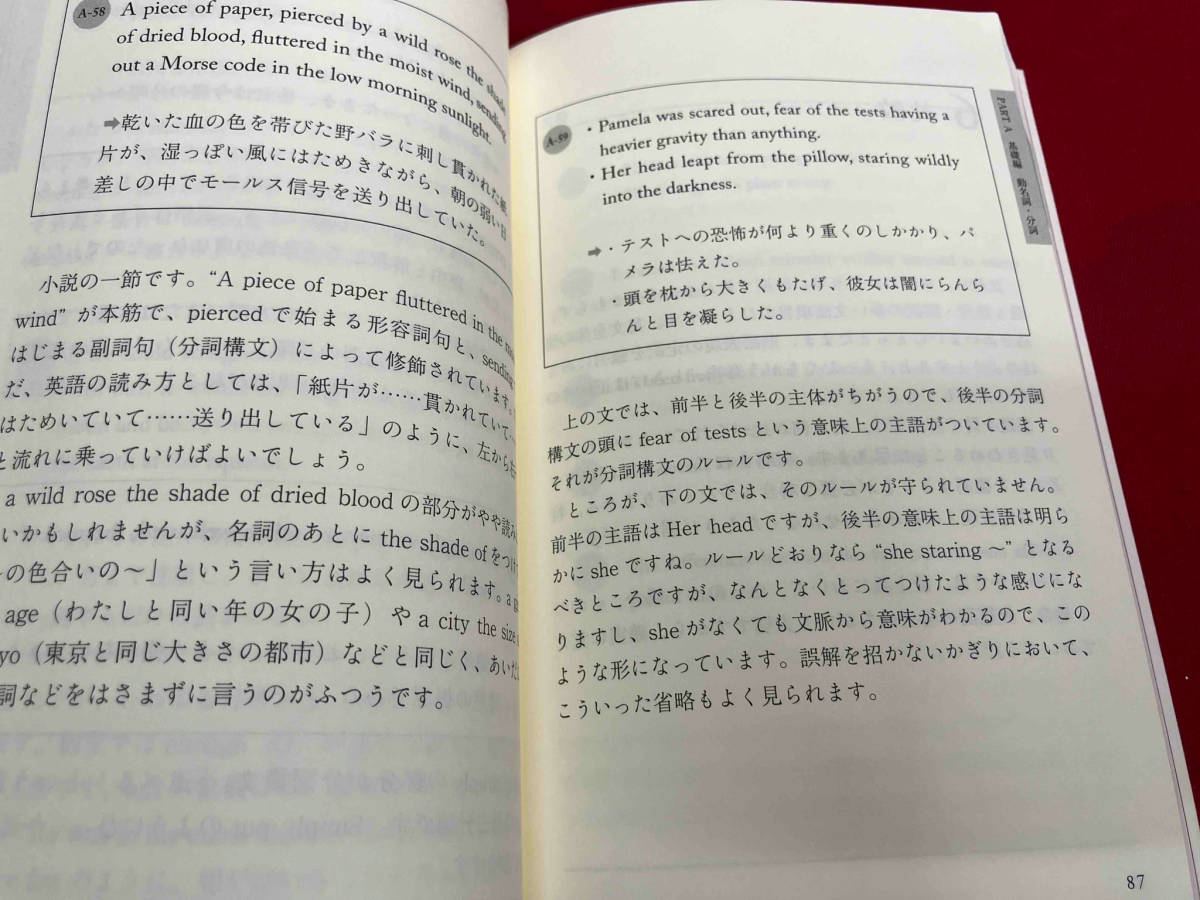 A-58
A piece of paper, pierced by a wild rose the shade
of dried blood, fluttered in the moist wind, sending
out a Morse code in the low morning sunlight.
➡乾いた血の色を帯びた野バラに刺し貫かれた紙
片が、湿っぽい風にはためきながら、朝の弱い日
差しの中でモールス信号を送り出していた。
小説の一節です。“A piece of paper fluttered in the
wind” が本筋で、pierced で始まる形容詞句と、sending
はじまる副詞句（分詞構文）によって修飾されています。
だ、英語の読み方としては、「紙片が……貫かれていて
はためいていて……送り出している」のように、左から
と流れに乗っていけばよいでしょう。
a wild rose the shade of dried blood の部分がやや読み
いかもしれませんが、名詞のあとに the shade of をつけ
の色合いの～」という言い方はよく見られます。
age（わたしと同い年の女の子）や a city the size
yo（東京と同じ大きさの都市）などと同じく、あいだ
詞などをはさまずに言うのがふつうです。
PART A 基礎編 動名詞・分詞
A-59
・Pamela was scared out, fear of the tests having a
heavier gravity than anything.
・Her head leapt from the pillow, staring wildly
into the darkness.
➡・テストへの恐怖が何より重くのしかかり、パ
メラは怯えた。
・頭を枕から大きくもたげ、彼女は闇にらんら
んと目を凝らした。
上の文では、前半と後半の主体がちがうので、後半の分詞
構文の頭に fear of tests という意味上の主語がついています。
それが分詞構文のルールです。
ところが、下の文では、そのルールが守られていません。
前半の主語は Her head ですが、後半の意味上の主語は明ら
かに she ですね。ルールどおりなら “she staring ～” となる
べきところですが、なんとなくとってつけたような感じにな
りますし、she がなくても文脈から意味がわかるので、この
ような形になっています。誤解を招かないかぎりにおいて、
こういった省略もよく見られます。
87